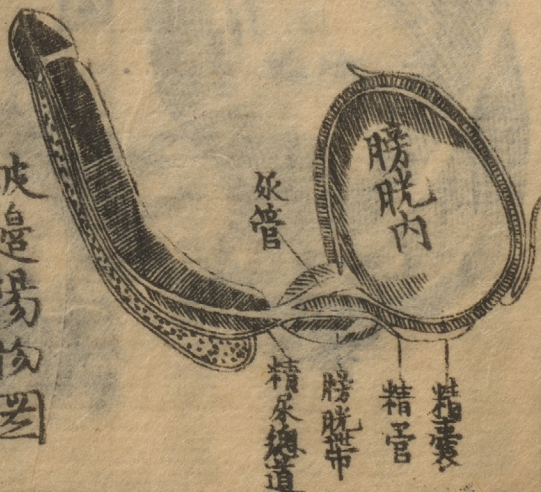 膀胱内
尿管
精囊
精管
膀胱帶
精尿總道
皮邊陽物圖